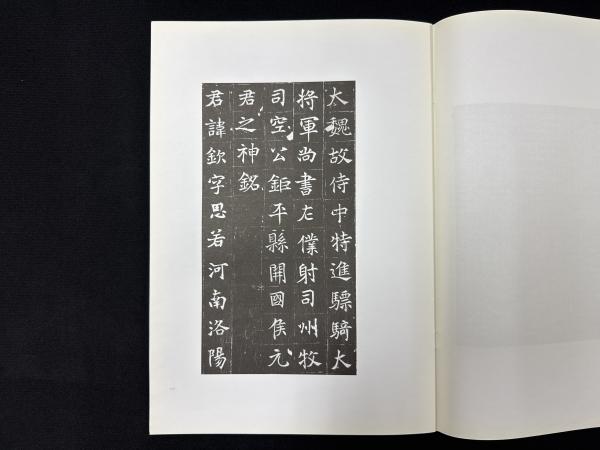 大魏故侍中特進驃騎大
將軍尚書左僕射司州牧
司空公鉅平縣開國侯元
君之神銘
君諱欽字思若河南洛陽